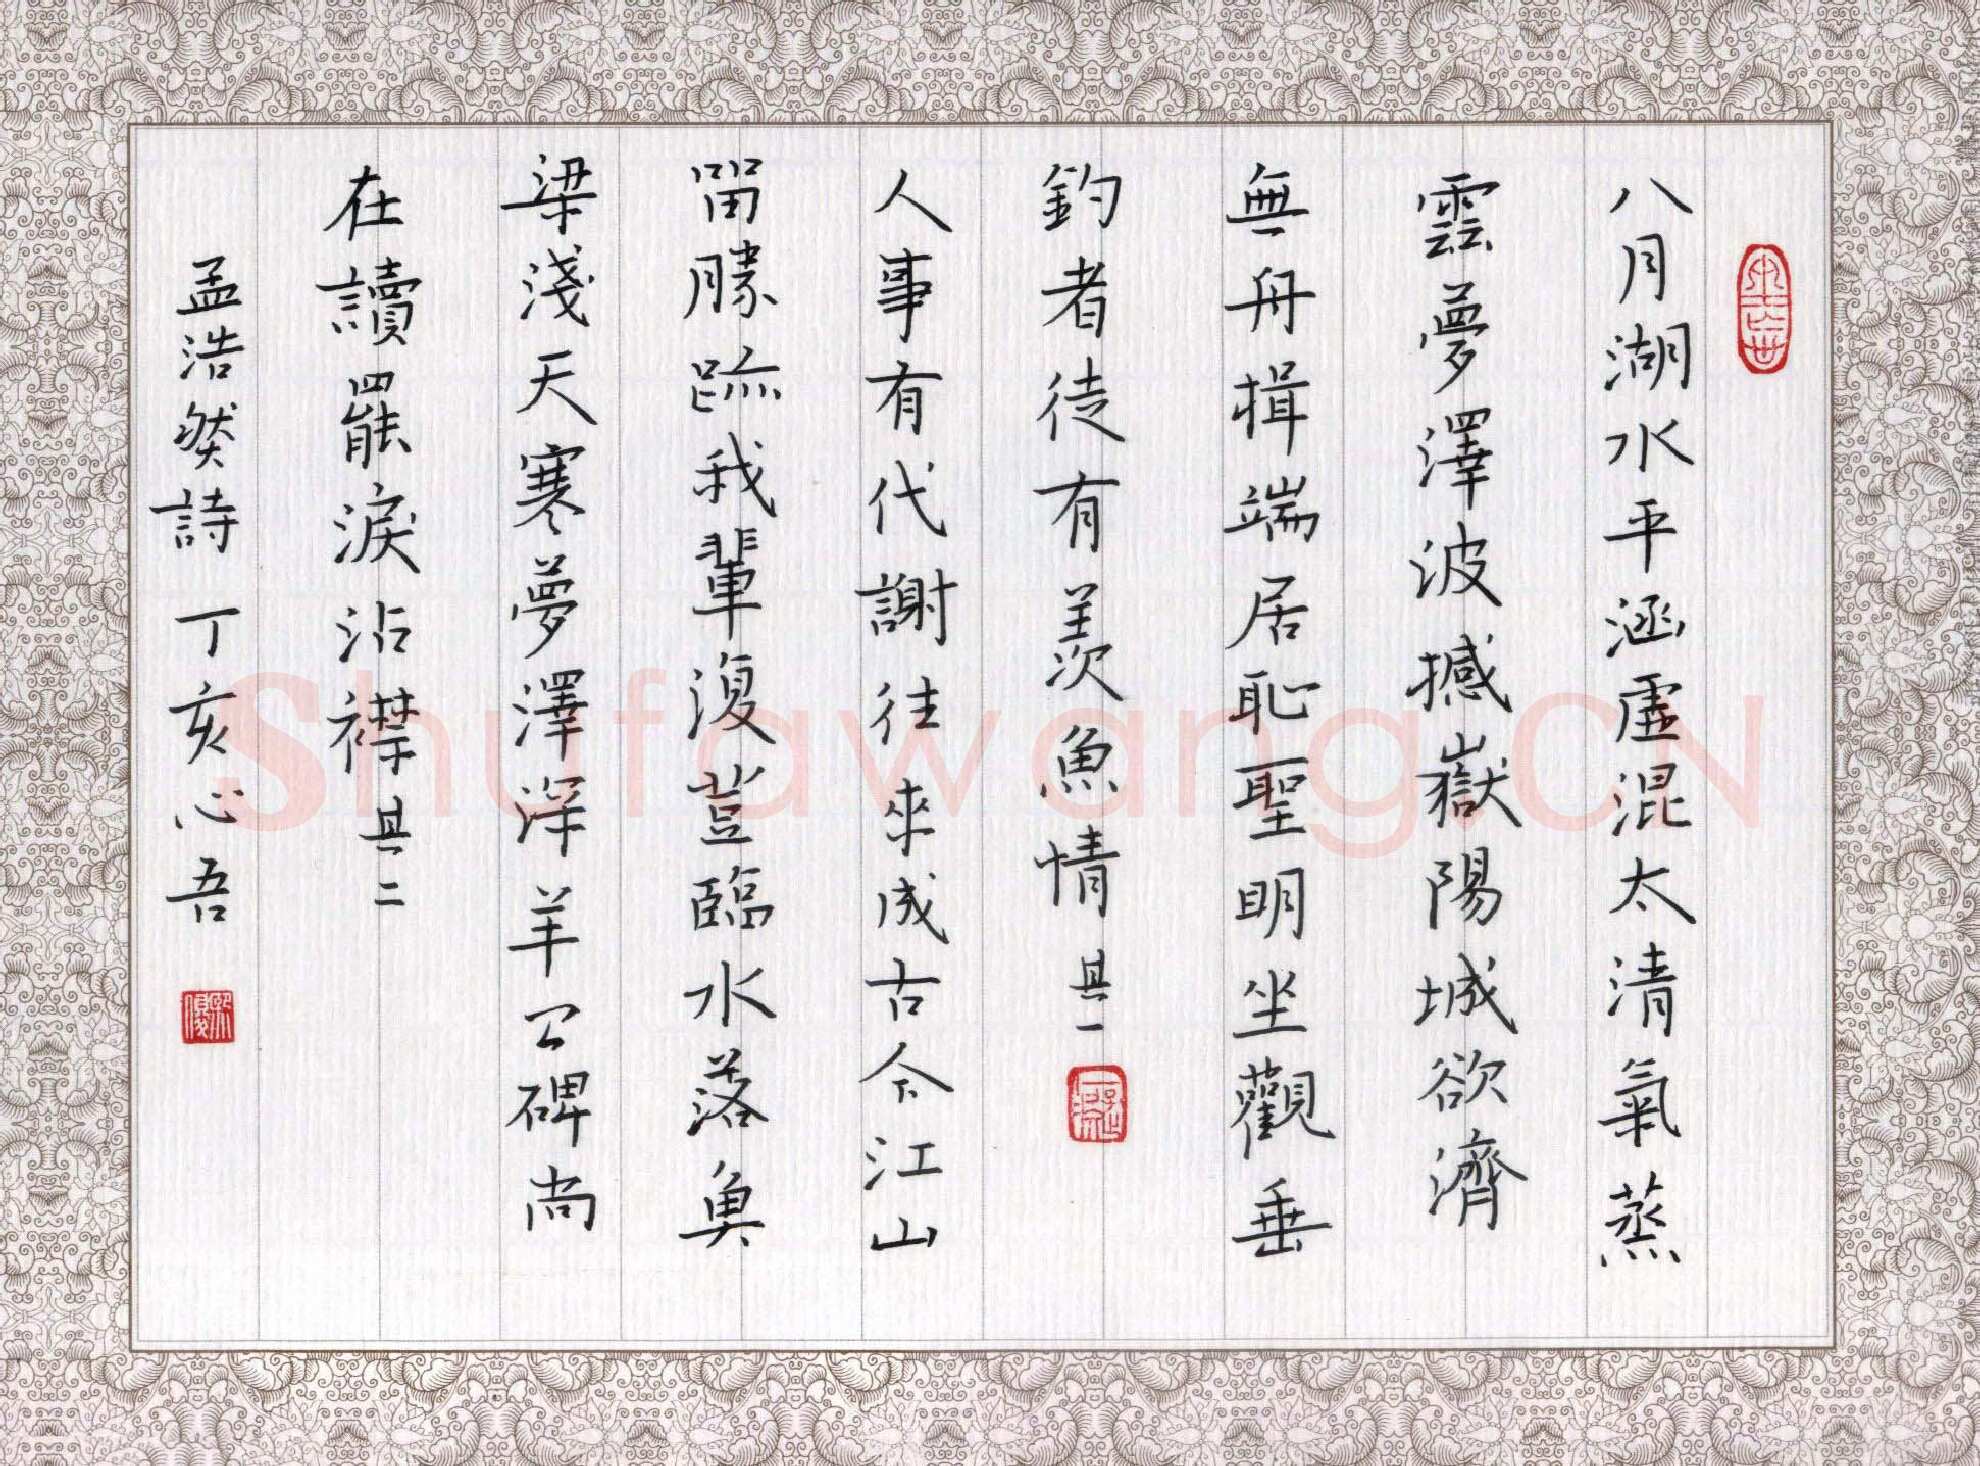 八月湖水平涵虛混太清氣蒸
雲夢澤波撼嶽陽城欲濟
無舟楫端居恥聖明坐觀垂
釣者徒有羨魚情 其一
人事有代謝往來成古今江山
畱勝跡我輩復豈臨水落魚
梁淺天寒夢澤深羊公碑尚
在讀罷淚沾襟 其二
孟浩然詩 丁亥心吾
Shufawang.CN